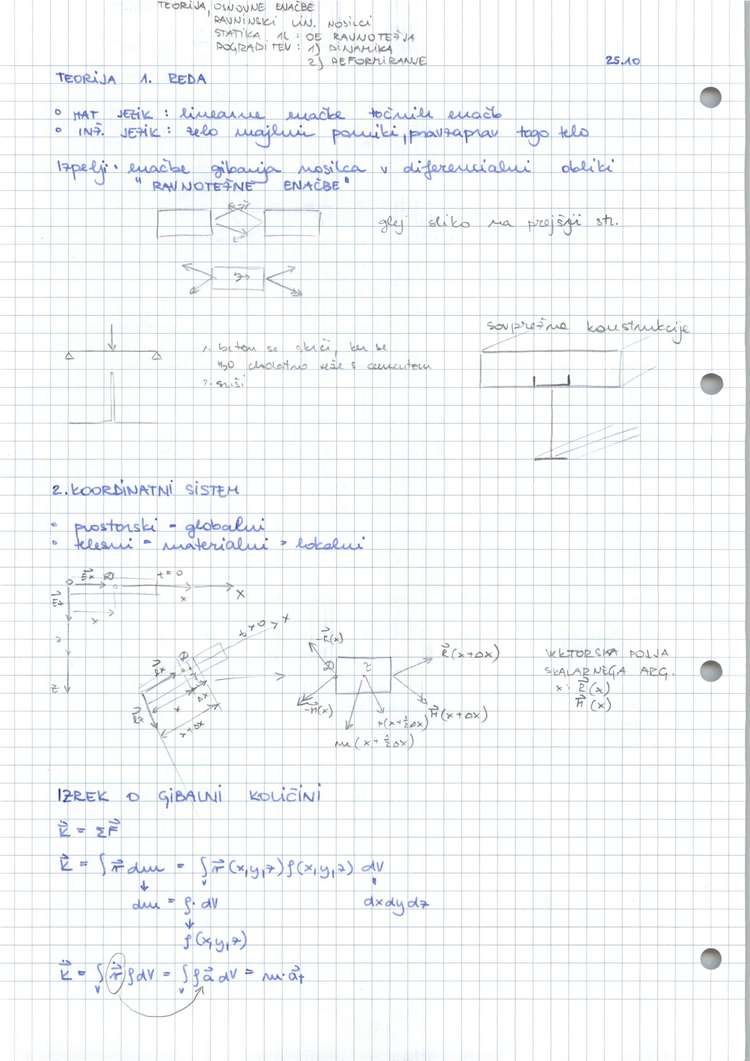 TEORIJA, OSNOVNE ENAČBE
RAVNINSKI LIN. NOSILCI
STATIKA IL : OE RAVNOTEŽJA
DOGRADITEV : 1) DINAMIKA
2) DEFORMIRANJE
25.10
TEORIJA 1. REDA
• MAT JEZIK : linearne enačbe točnih enačb
• INŽ. JEZIK : zelo majhni pomiki, pravzaprav togo telo
Izpelji. enačbe gibanja nosilca v diferencialni obliki
"RAVNOTEŽNE ENAČBE"
glej sliko na prejšnji str.
sovprežne konstrukcije
1. beton se skrči, ker se
H2O dodatno veže s cementom
2.
2. KOORDINATNI SISTEM
• prostorski - globalni
• telesni = materialni > lokalni
Ex t=0
x x
Ez
x
z
z
t>0 x
Ex
Δx
Ez x
x+Δx
-R(x)
R(x+Δx)
-M(x)
M(x+Δx)
r(x+½Δx)
m(x+½Δx)
VEKTORSKA POLJA
SKALARNEGA ARG.
x: R(x)
M(x)
IZREK O GIBALNI KOLIČINI
K = ΣF
K = ∫ r dm = ∫ r(x,y,z) ρ(x,y,z) dV
V
dm = ρ. dV
dxdydz
ρ(x,y,z)
K = ∫ r ρdV = ∫ ρ a dV = m·aT
V V